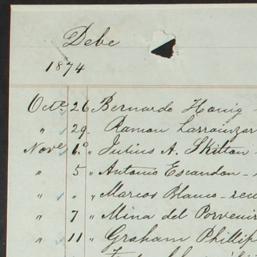 Debe
1874
Octe 26 Bernardo Honig
" 29 Ramon Larrainzar
Nove 1º " Julius A. Skilton
" 5 " Antonio Escandon
" " " Marcos Blanco
" 7 " Mina del Porvenir
" 11 " Graham Phillip